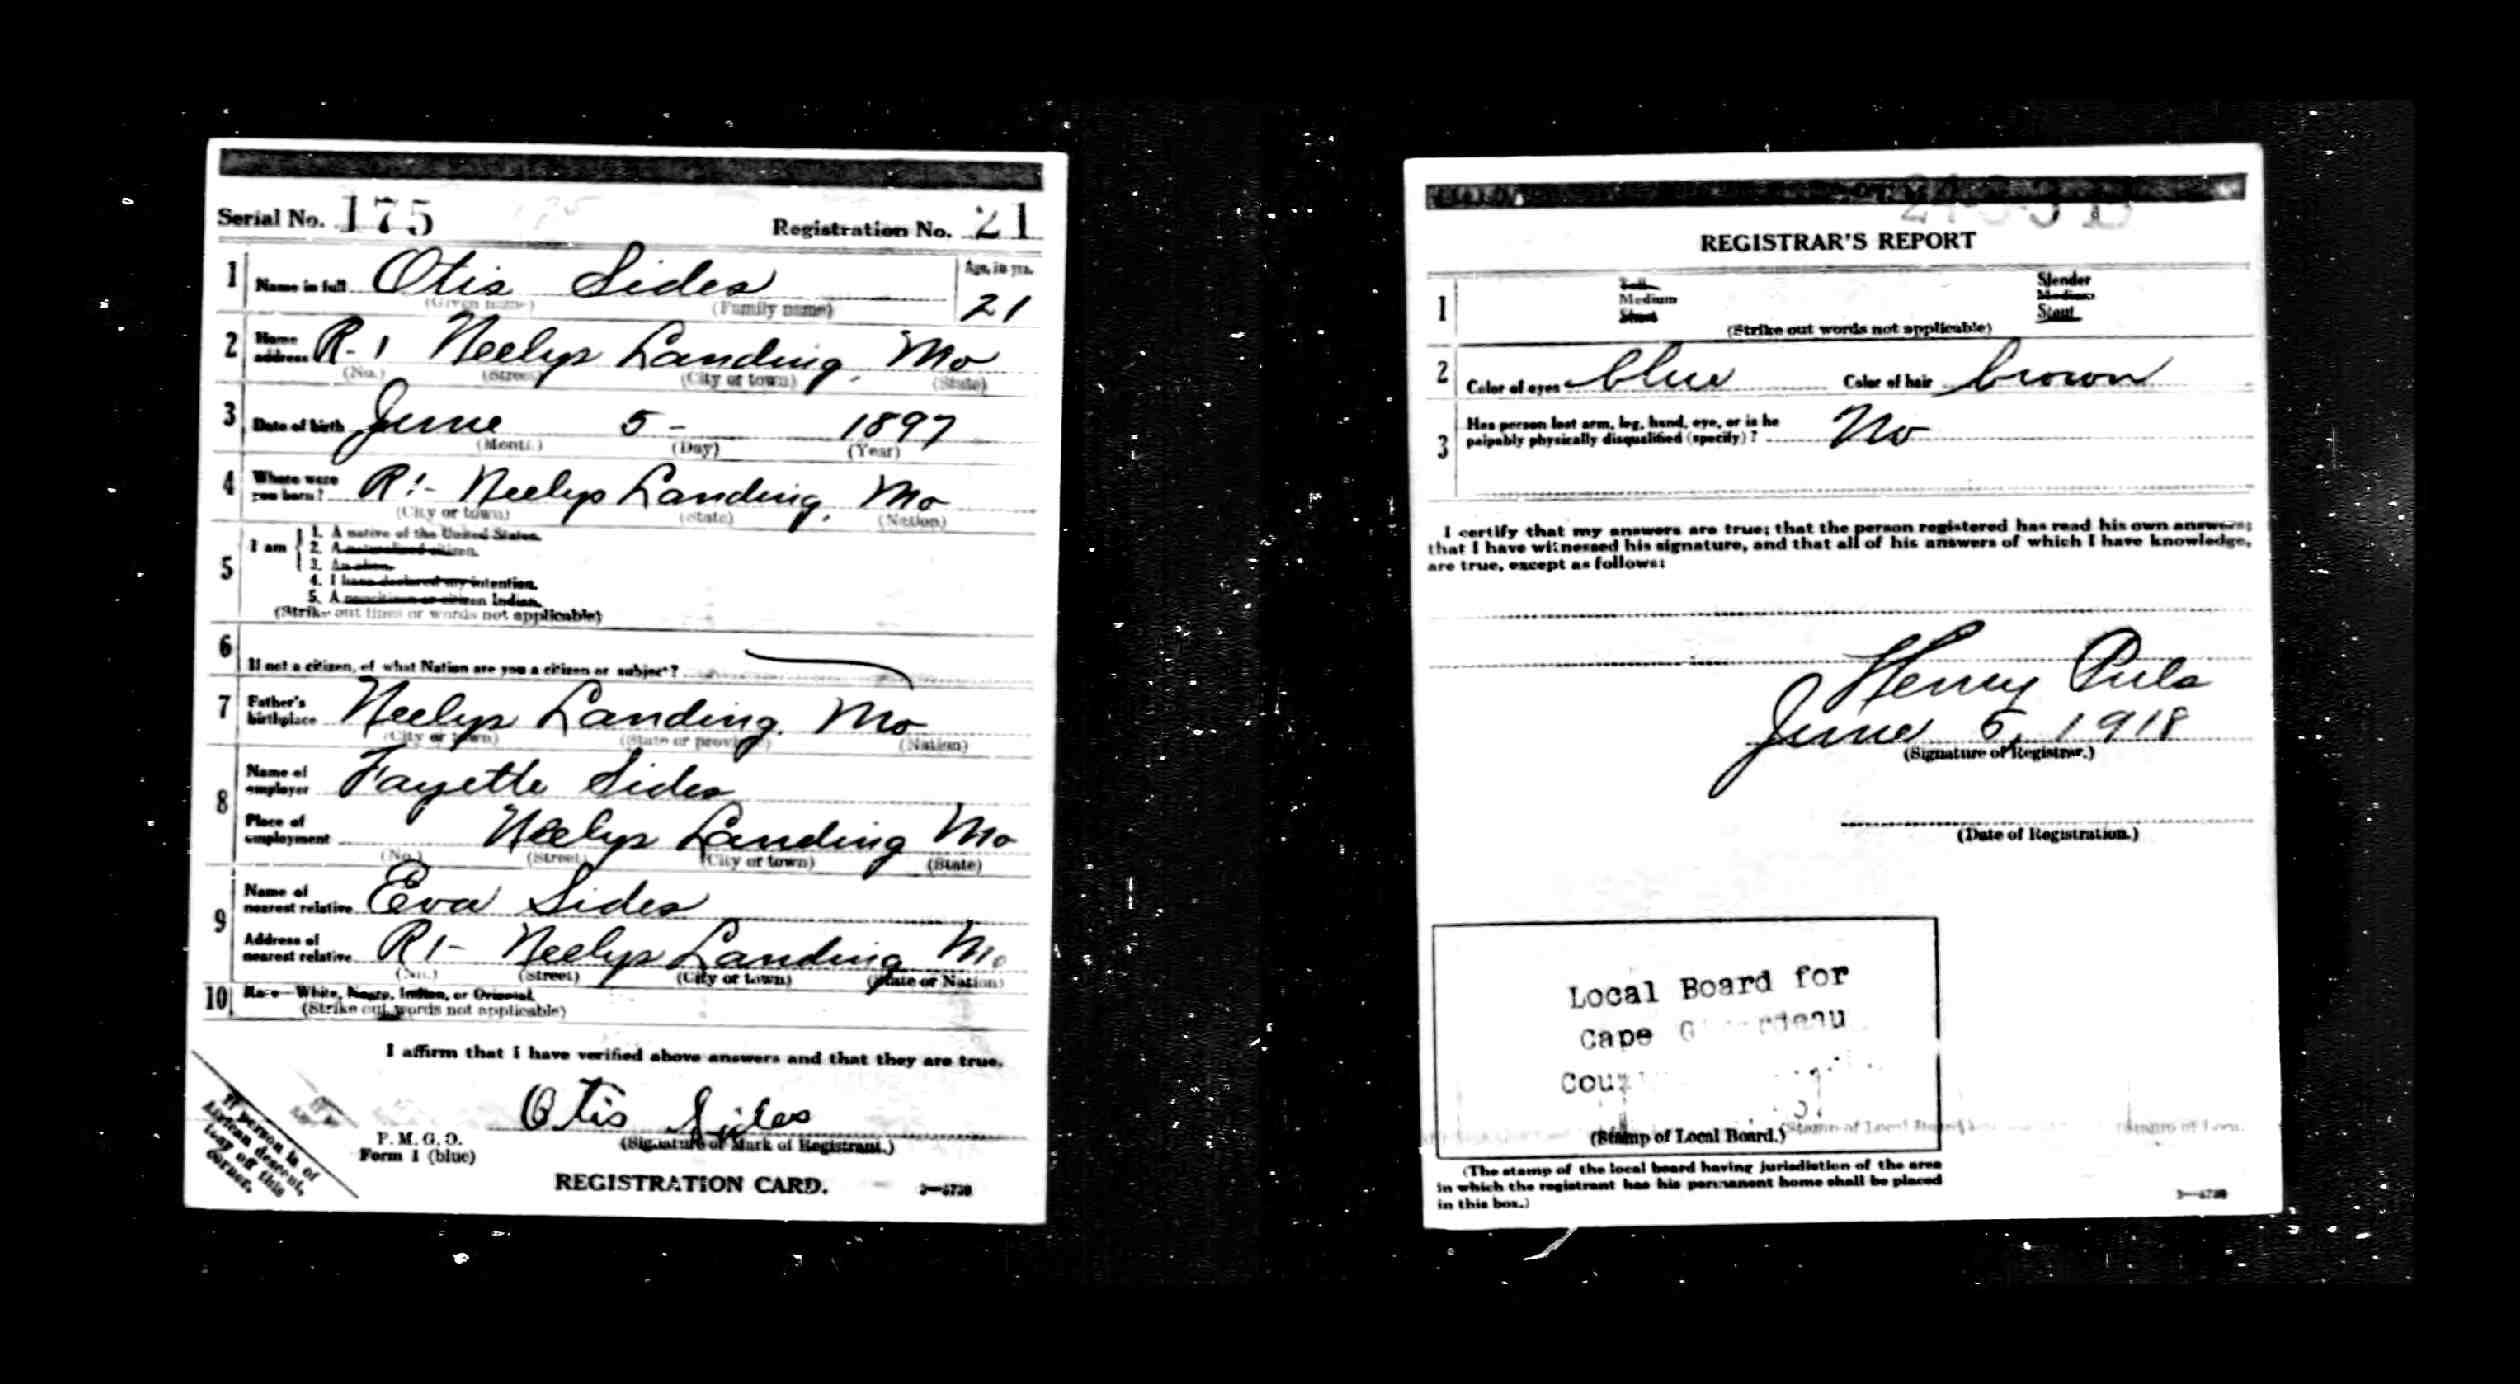 Serial No. 175 Registration No. 21
1 Name in full Otis Sides Age, in yrs.
(Given name) (Family name) 21
2 Home address R-1 Neelys Landing, Mo
(No.) (Street) (City or town) (State)
3 Date of birth June 5 - 1897
(Month) (Day) (Year)
4 Where were you born? R1- Neelys Landing, Mo
(City or town) (State) (Nation)
5 I am
1. A native of the United States.
2. A naturalized citizen.
3. An alien.
4. I have declared my intention.
5. A noncitizen or citizen Indian.
(Strike out lines or words not applicable)
6 If not a citizen, of what Nation are you a citizen or subject?
7 Father's birthplace Neelys Landing. Mo
(City or town) (State or province) (Nation)
8 Name of employer Fayette Sides
Place of employment Neelys Landing Mo
(No.) (Street) (City or town) (State)
9 Name of nearest relative Eva Sides
Address of nearest relative R1- Neelys Landing Mo
(No.) (Street) (City or town) (State or Nation)
10 Race—White, Negro, Indian, or Oriental
(Strike out words not applicable)
I affirm that I have verified above answers and that they are true.
Otis Sides
(Signature or Mark of Registrant.)
P. M. G. O.
Form 1 (blue)
REGISTRATION CARD.
3—6730
If person is of
African descent,
tear off this
corner.
REGISTRAR'S REPORT
1 Tall Slender
Medium Medium
Short Stout
(Strike out words not applicable)
2 Color of eyes blue Color of hair brown
3 Has person lost arm, leg, hand, eye, or is he
palpably physically disqualified (specify)? No
I certify that my answers are true; that the person registered has read his own answers;
that I have witnessed his signature, and that all of his answers of which I have knowledge,
are true, except as follows:
Henry Puls
June 5, 1918
(Signature of Registrar.)
(Date of Registration.)
Local Board for
Cape Girardeau
(Stamp of Local Board.)
(The stamp of the local board having jurisdiction of the area
in which the registrant has his permanent home shall be placed
in this box.)
3—6730